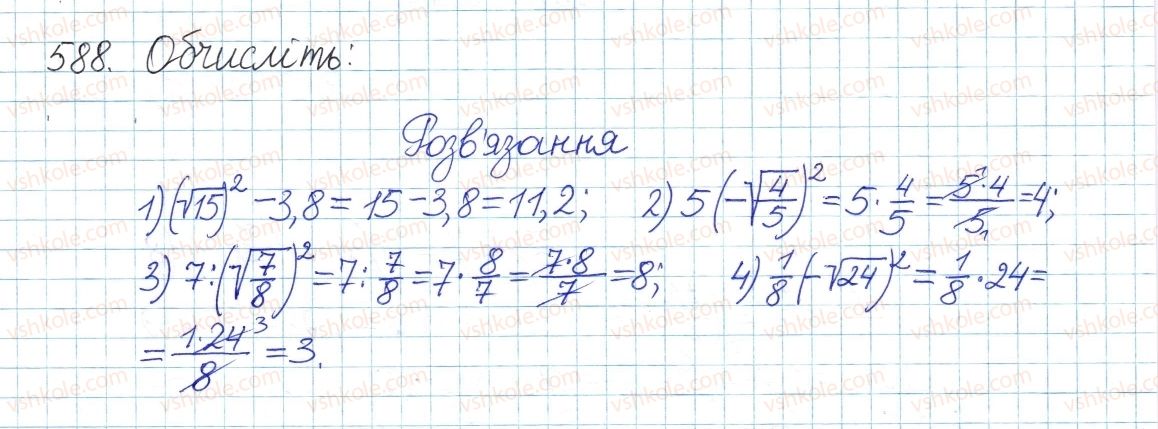 588. Обчисліть:
Розв'язання
1) (√15)² - 3,8 = 15 - 3,8 = 11,2; 2) 5(-√(4/5))² = 5 · 4/5 = (5¹ · 4)/5₁ = 4;
3) 7 : (√(7/8))² = 7 : 7/8 = 7 · 8/7 = (7 · 8)/7 = 8; 4) 1/8 (-√24)² = 1/8 · 24 =
= (1 · 24³)/8 = 3.